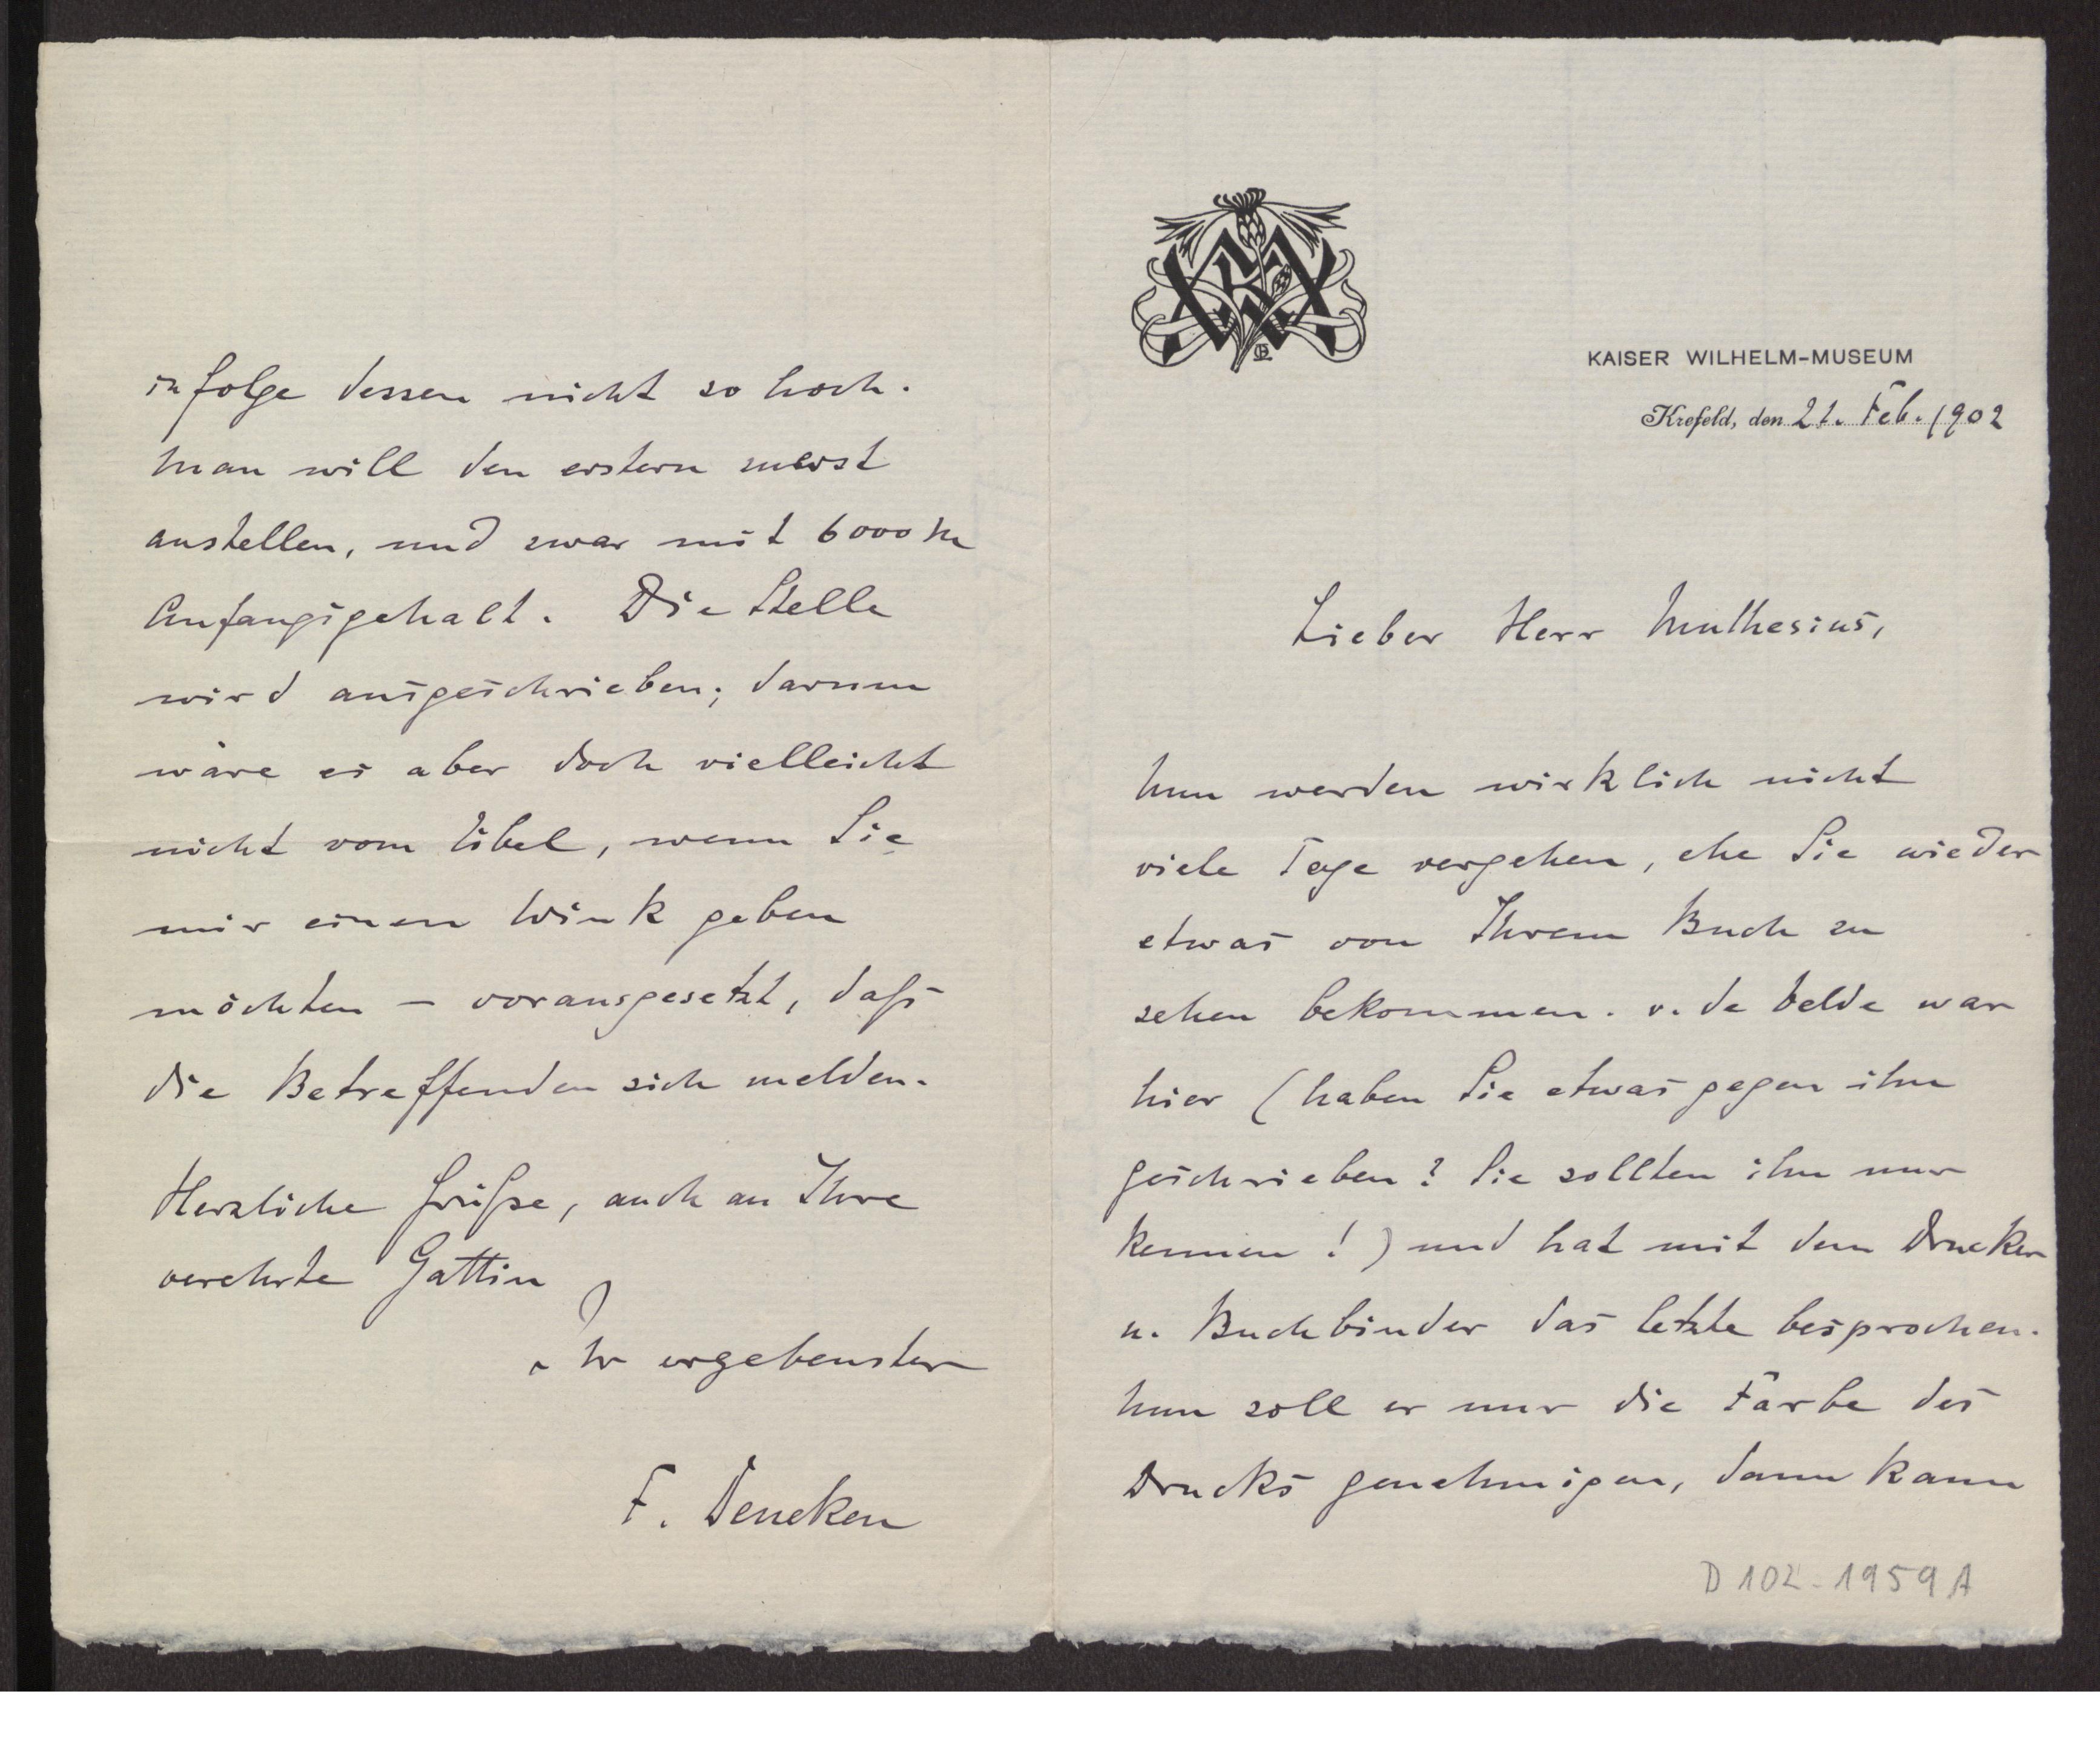 KAISER WILHELM-MUSEUM
Krefeld, den 21. Feb. 1902
Lieber Herr Muthesius,
Nun werden wirklich nicht
viele Tage vergehen, ehe Sie wieder
etwas von Ihrem Buch zu
sehen bekommen. v. de Velde war
hier (haben Sie etwas gegen ihn
geschrieben? Sie sollten ihn nur
kennen!) und hat mit dem Drucker
u. Buchbinder das letzte besprochen.
Nun soll er nur die Farbe des
Drucks genehmigen, dann kann
D 102-1959 A
infolge dessen nicht so hoch.
Man will den erstern zuerst
anstellen, und zwar mit 6000 M
Anfangsgehalt. Die Stelle
wird ausgeschrieben; darum
wäre es aber doch vielleicht
nicht vom Übel, wenn Sie
mir einen Wink geben
möchten – vorausgesetzt, daß
die Betreffenden sich melden.
Herzliche Grüße, auch an Ihre
verehrte Gattin
Ihr ergebenster
F. Deneken